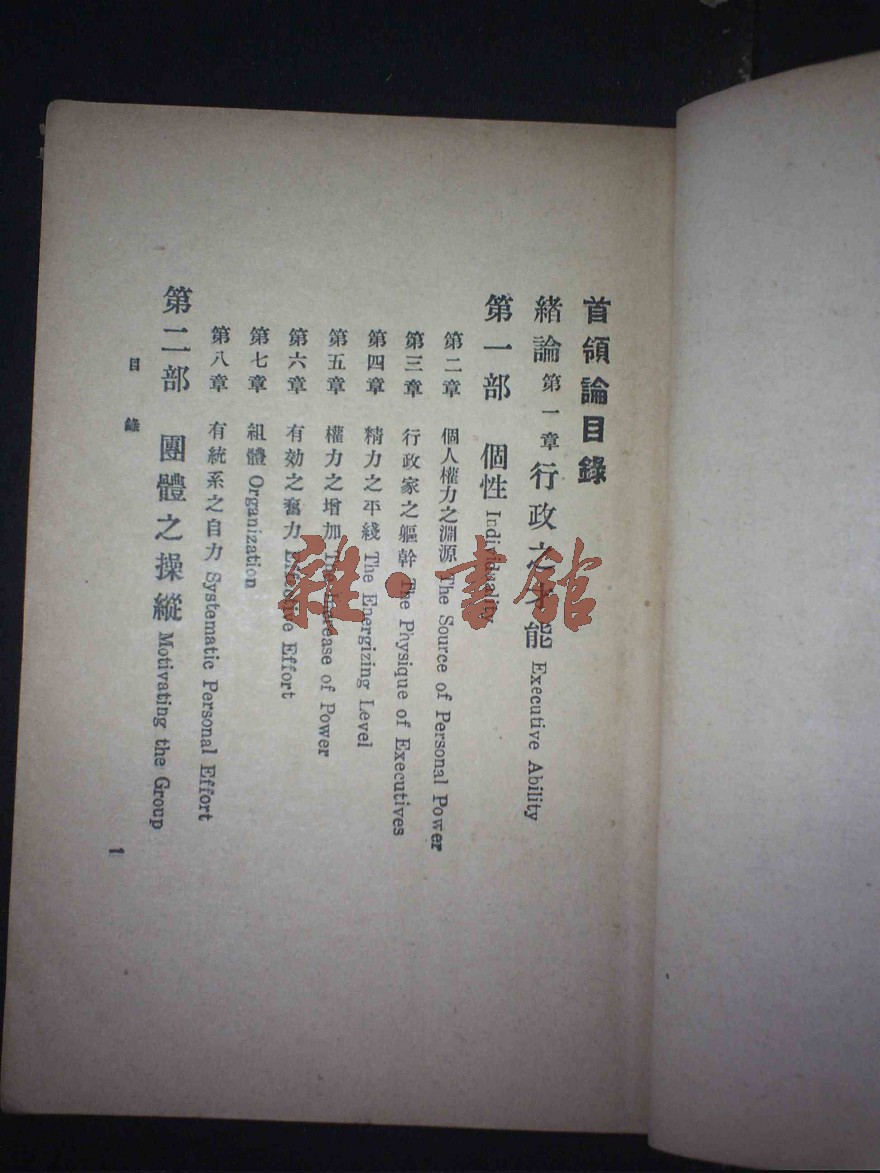 首領論目錄
緒論 第一章 行政之才能 Executive Ability
第一部 個性 Individuality
第二章 個人權力之淵源 The Source of Personal Power
第三章 行政家之軀幹 The Physique of Executives
第四章 精力之平綫 The Energizing Level
第五章 權力之增加 The Increase of Power
第六章 有効之奮力 Effective Effort
第七章 組體 Organization
第八章 有統系之自力 Systematic Personal Effort
第二部 團體之操縱 Motivating the Group
目錄
1
雜·書館